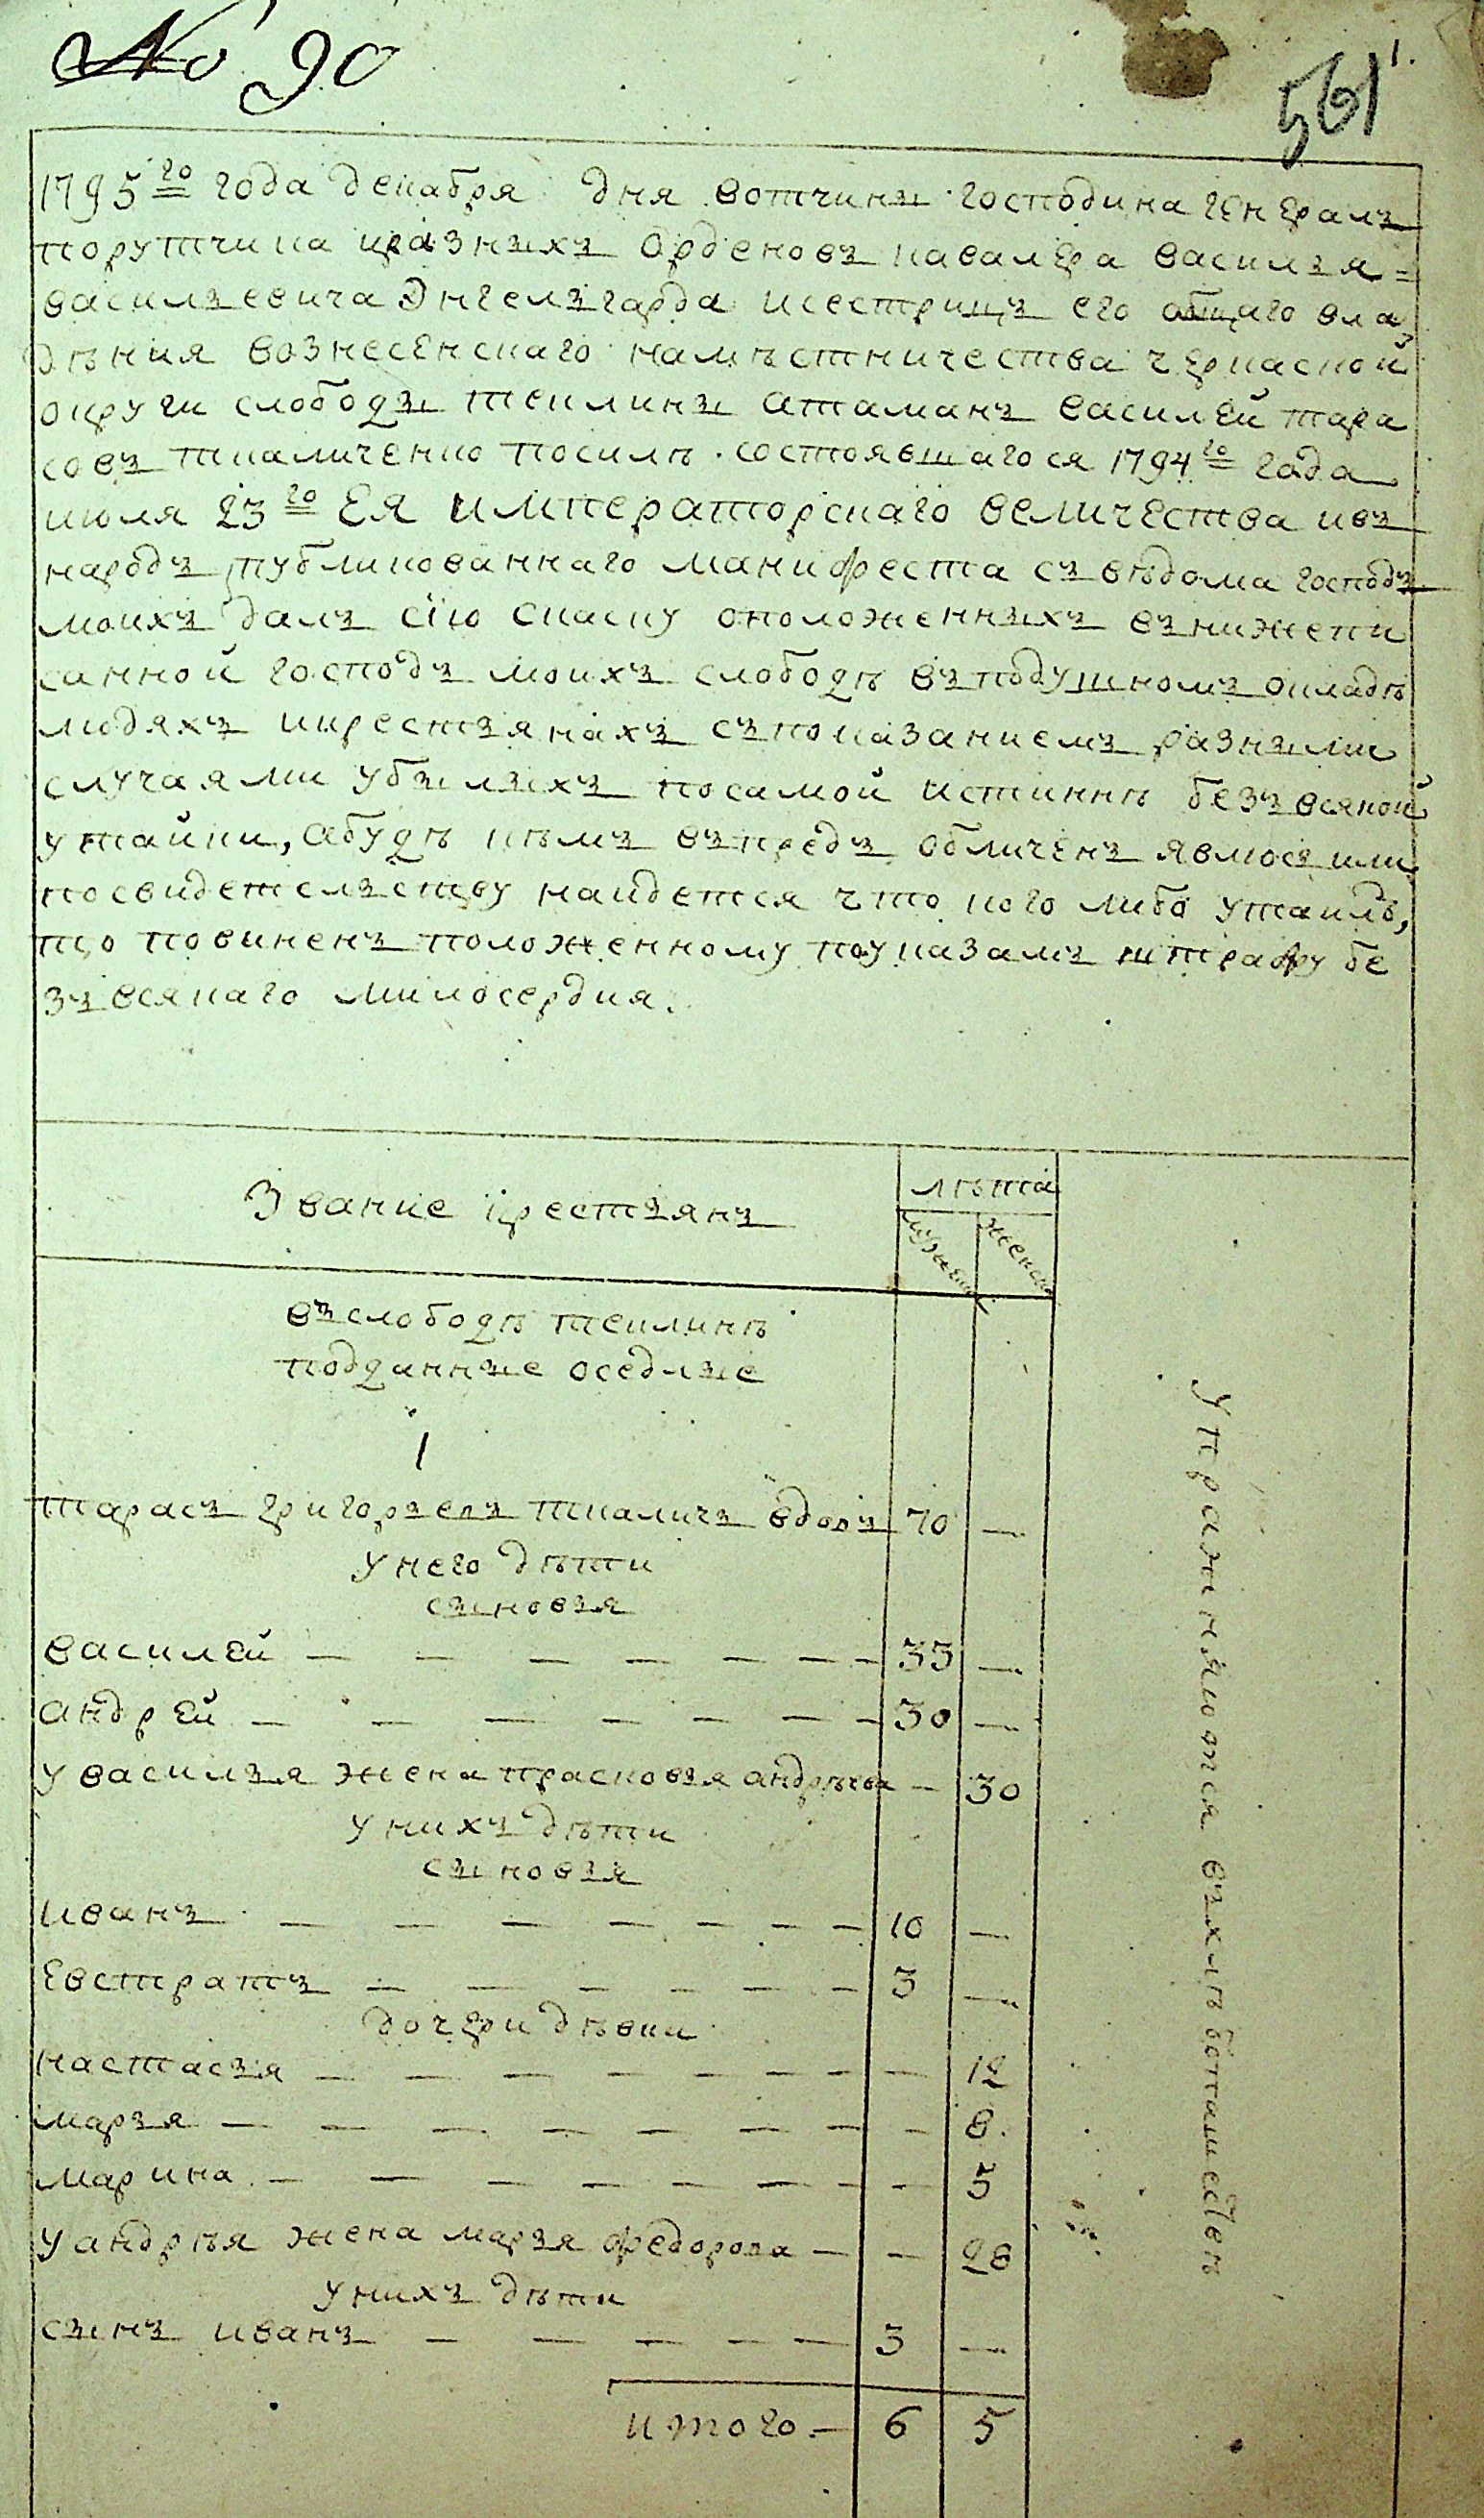 № 90
561 1.
1795го года декабря дня вотчины господина генералъ
порутчика иразныхъ орденовъ кавалера василья=
васильевича Энгельгарда исестрицъ его общаго вла
дѣния вознесенскаго намѣстничества черкаской
округи слободы теклины атаманъ василей тара
совъ ткаличенко посилѣ состоявшагося 1794го года
июля 23го Ея императорскаго величества ивъ
народъ публикованнаго манифеста съ вѣдома господъ
моихъ далъ сїю скаску оположенныхъ внижепи
санной господъ моихъ слободѣ въподушномъ окладѣ
людяхъ икрестьянахъ съпоказаниемъ разными
случаями убылыхъ посамой истиннѣ безъ всякой
утайки, абудѣ кѣмъ въпредъ обличенъ явлюсь или
посвидетельству найдется что кого либо утаилъ,
то повиненъ положенному поуказамъ штрафу бе
зъвсякаго милосердия.
Звание крестьянъ
лѣта
мужеск
женска
въслободѣ теклинѣ
подданные оседлые
1
тарасъ григорьевъ ткаличъ вдовъ 70 —
унего дѣти
сыновья
василей — — — — — — — 35 —
андрей — — — — — — — 30 —
увасилья жена прасковья андрѣева — 30
унихъ дѣти
сыновья
иванъ — — — — — — — 10 —
Евстратъ — — — — — — 3 —
дочери дѣвки
настасья — — — — — — — — 12
марья — — — — — — — — 8.
марина — — — — — — — — 5
уандрѣя жена марья федорова — — 28
унихъ дѣти
сынъ иванъ — — — — — 3 —
итого — 6 5
упражняются въхлѣбопашествѣ